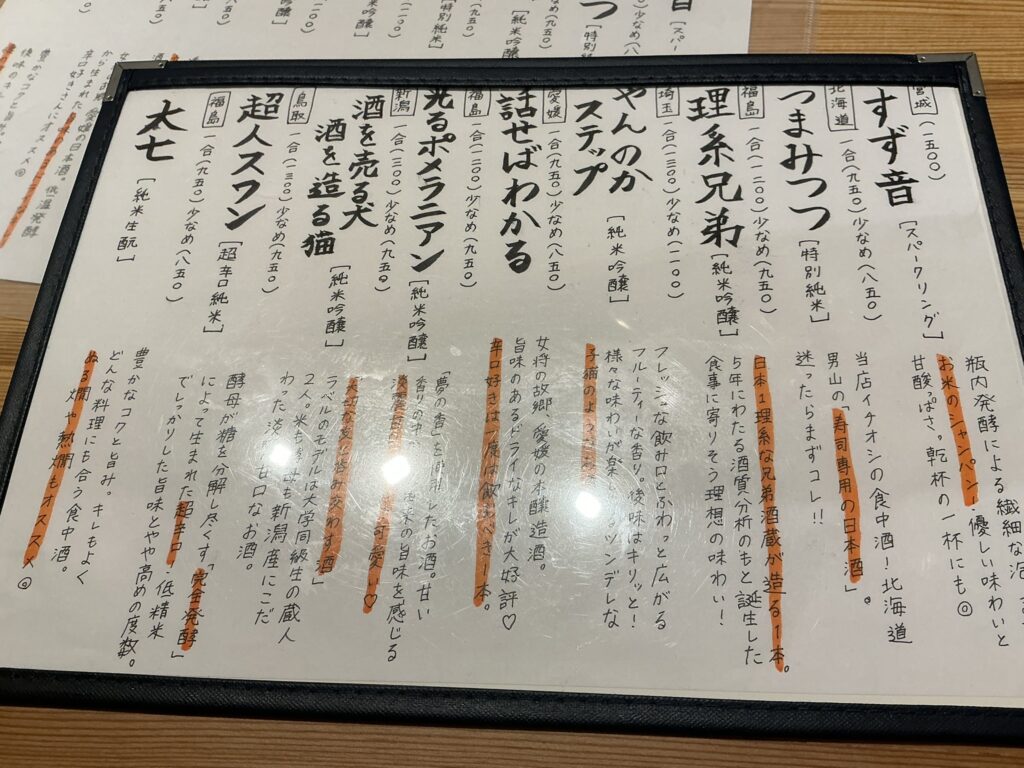 宮城
すず音
(一五〇〇)
[スパークリング]
瓶内発酵による繊細な泡
お米のシャンパン!優しい味わいと
甘酸っぱさ。乾杯の一杯にも◎
北海道
つまみつつ
一合(九五〇)少なめ(八五〇)
[特別純米]
当店イチオシの食中酒!北海道
男山の「寿司専用の日本酒」。
迷ったらまずコレ!!
福島
理系兄弟
一合(一二〇〇)少なめ(九五〇)
[純米吟醸]
日本1理系な兄弟酒蔵が造る1本。
5年にわたる酒質分析のもと誕生した
食事に寄りそう理想の味わい!
埼玉
やんのか
ステップ
一合(一三〇〇)少なめ(一一〇〇)
[純米吟醸]
フレッシュな飲み口とふわっと広がる
フルーティーな香り。後味はキリッと!
様々な味わいが ツンデレな
子猫のような
愛媛
話せばわかる
一合(九五〇)少なめ(八五〇)
女将の故郷、愛媛の本醸造酒。
旨味のあるドライなキレが大好評♡
辛口好きは1度は飲むべき1本。
福島
光るポメラニアン
一合(一二〇〇)少なめ(九五〇)
[純米吟醸]
「夢の香」を使用したお酒。甘い
香りの中に お米の旨味を感じる
可愛い♡
新潟
酒を売る犬
酒を造る猫
一合(一三〇〇)少なめ(九五〇)
[純米吟醸]
酌み交わす酒」
ラベルのモデルは大学同級生の蔵人
2人。米も 新潟産にこだ
わった淡 甘口なお酒。
鳥取
超人スワン
一合(一三〇〇)少なめ(九五〇)
[超辛口純米]
酵母が糖を分解し尽くす「完全発酵」
によって生まれた超辛口。低精米
でしっかりした旨味とやや高めの度数。
福島
大七
一合(九五〇)少なめ(八五〇)
[純米生酛]
豊かなコクと旨み。キレもよく
どんな料理にも合う食中酒。
ぬる燗や熱燗もオススメ◎